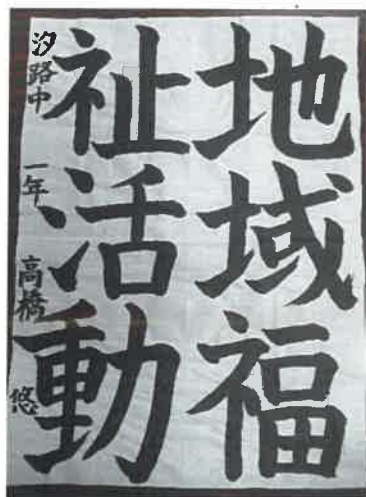 地域福
祉活動
汐路中 一年 高橋 悠